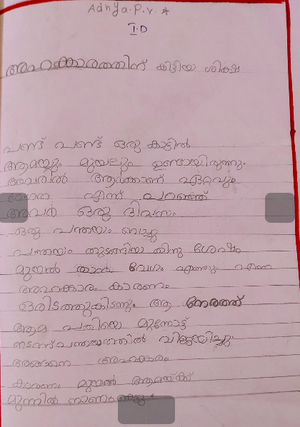 Adnya.P.V.
I.D
അഹങ്കാരത്തിന് കിട്ടിയ ശിക്ഷ
പണ്ട് പണ്ട് ഒരു കാട്ടിൽ
ആമയും മുയലും ഉണ്ടായിരുന്നു.
അവരിൽ ആരാണ് ഏറ്റവും
എന്ന് പറഞ്ഞ്
അവർ ഒരു ദിവസം
ഒരു പന്തയം വെച്ചു
പന്തയം തുടങ്ങിയതിനു ശേഷം
മുയൽ ഞാൻ വേഗം എത്തും എന്ന
അഹങ്കാരം കാരണം
ഒരിടത്തുകിടന്നു ആ നേരത്ത്
ആമ പതിയെ മുന്നോട്ട്
നടന്ന് പന്തയത്തിൽ വിജയിച്ചു
അങ്ങനെ അഹങ്കാരം
കാരണം മുയൽ ആമയ്ക്ക്
മുന്നിൽ